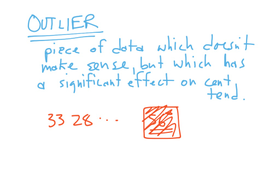 OUTLIER
piece of data which doesn't
make sense, but which has
a significant effect on cent
tend.
33 28 ...